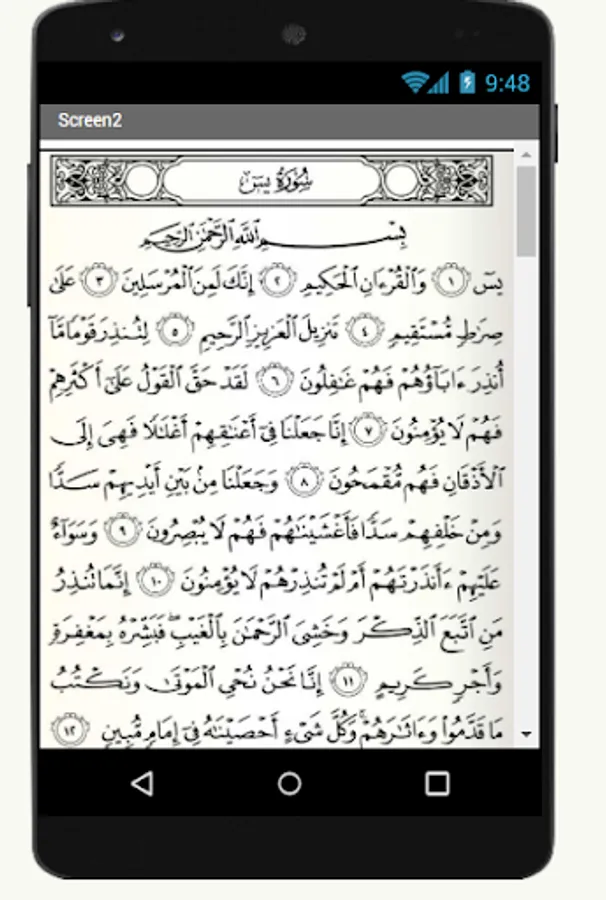 9:48
Screen2
سُورَةُ يسٓ
بِسْمِ ٱللَّهِ ٱلرَّحْمَٰنِ ٱلرَّحِيمِ
يسٓ ١ وَٱلْقُرْءَانِ ٱلْحَكِيمِ ٢ إِنَّكَ لَمِنَ ٱلْمُرْسَلِينَ ٣ عَلَىٰ
صِرَٰطٍ مُّسْتَقِيمٍ ٤ تَنزِيلَ ٱلْعَزِيزِ ٱلرَّحِيمِ ٥ لِتُنذِرَ قَوْمًا مَّآ
أُنذِرَ ءَابَآؤُهُمْ فَهُمْ غَٰفِلُونَ ٦ لَقَدْ حَقَّ ٱلْقَوْلُ عَلَىٰٓ أَكْثَرِهِمْ
فَهُمْ لَا يُؤْمِنُونَ ٧ إِنَّا جَعَلْنَا فِىٓ أَعْنَٰقِهِمْ أَغْلَٰلًا فَهِىَ إِلَى
ٱلْأَذْقَانِ فَهُم مُّقْمَحُونَ ٨ وَجَعَلْنَا مِنۢ بَيْنِ أَيْدِيهِمْ سَدًّا
وَمِنْ خَلْفِهِمْ سَدًّا فَأَغْشَيْنَٰهُمْ فَهُمْ لَا يُبْصِرُونَ ٩ وَسَوَآءٌ
عَلَيْهِمْ ءَأَنذَرْتَهُمْ أَمْ لَمْ تُنذِرْهُمْ لَا يُؤْمِنُونَ ١٠ إِنَّمَا تُنذِرُ
مَنِ ٱتَّبَعَ ٱلذِّكْرَ وَخَشِىَ ٱلرَّحْمَٰنَ بِٱلْغَيْبِ ۖ فَبَشِّرْهُ بِمَغْفِرَةٍ
وَأَجْرٍ كَرِيمٍ ١١ إِنَّا نَحْنُ نُحْىِ ٱلْمَوْتَىٰ وَنَكْتُبُ
مَا قَدَّمُوا۟ وَءَاثَٰرَهُمْ ۚ وَكُلَّ شَىْءٍ أَحْصَيْنَٰهُ فِىٓ إِمَامٍ مُّبِينٍ ١٢